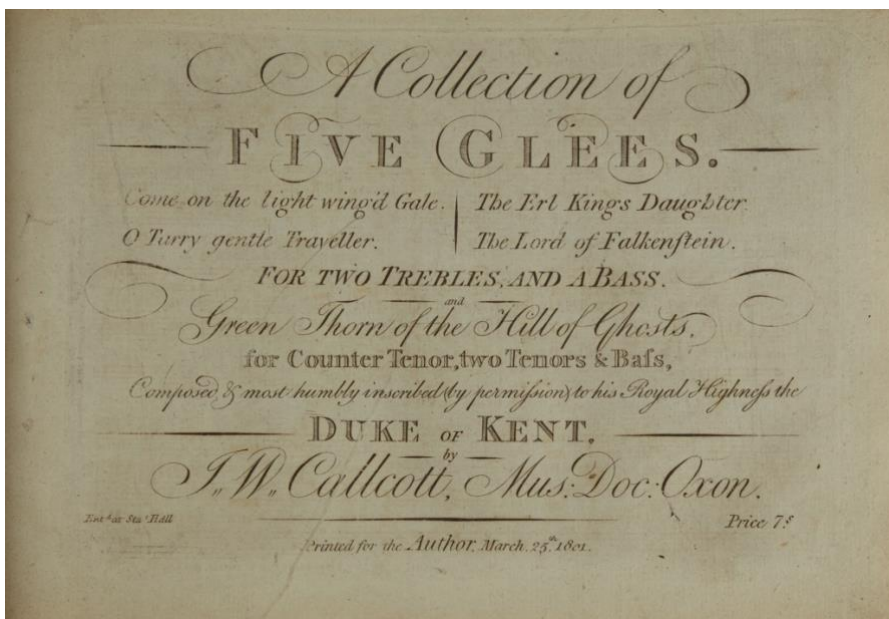 A Collection of
FIVE GLEES.
Come on the light wing'd Gale.
O Tarry gentle Traveller.
The Erl Kings Daughter.
The Lord of Falkenſtein.
FOR TWO TREBLES, AND A BASS.
and
Green Thorn of the Hill of Ghosts,
for Counter Tenor, two Tenors & Baſs,
Composed & most humbly inscribed (by permiſsion) to his Royal Highneſs the
DUKE OF KENT.
by
J,, W,, Callcott, Mus: Doc: Oxon.
Ent.d at Sta.s Hall
Price 7.s
Printed for the Author, March, 25.th 1801.